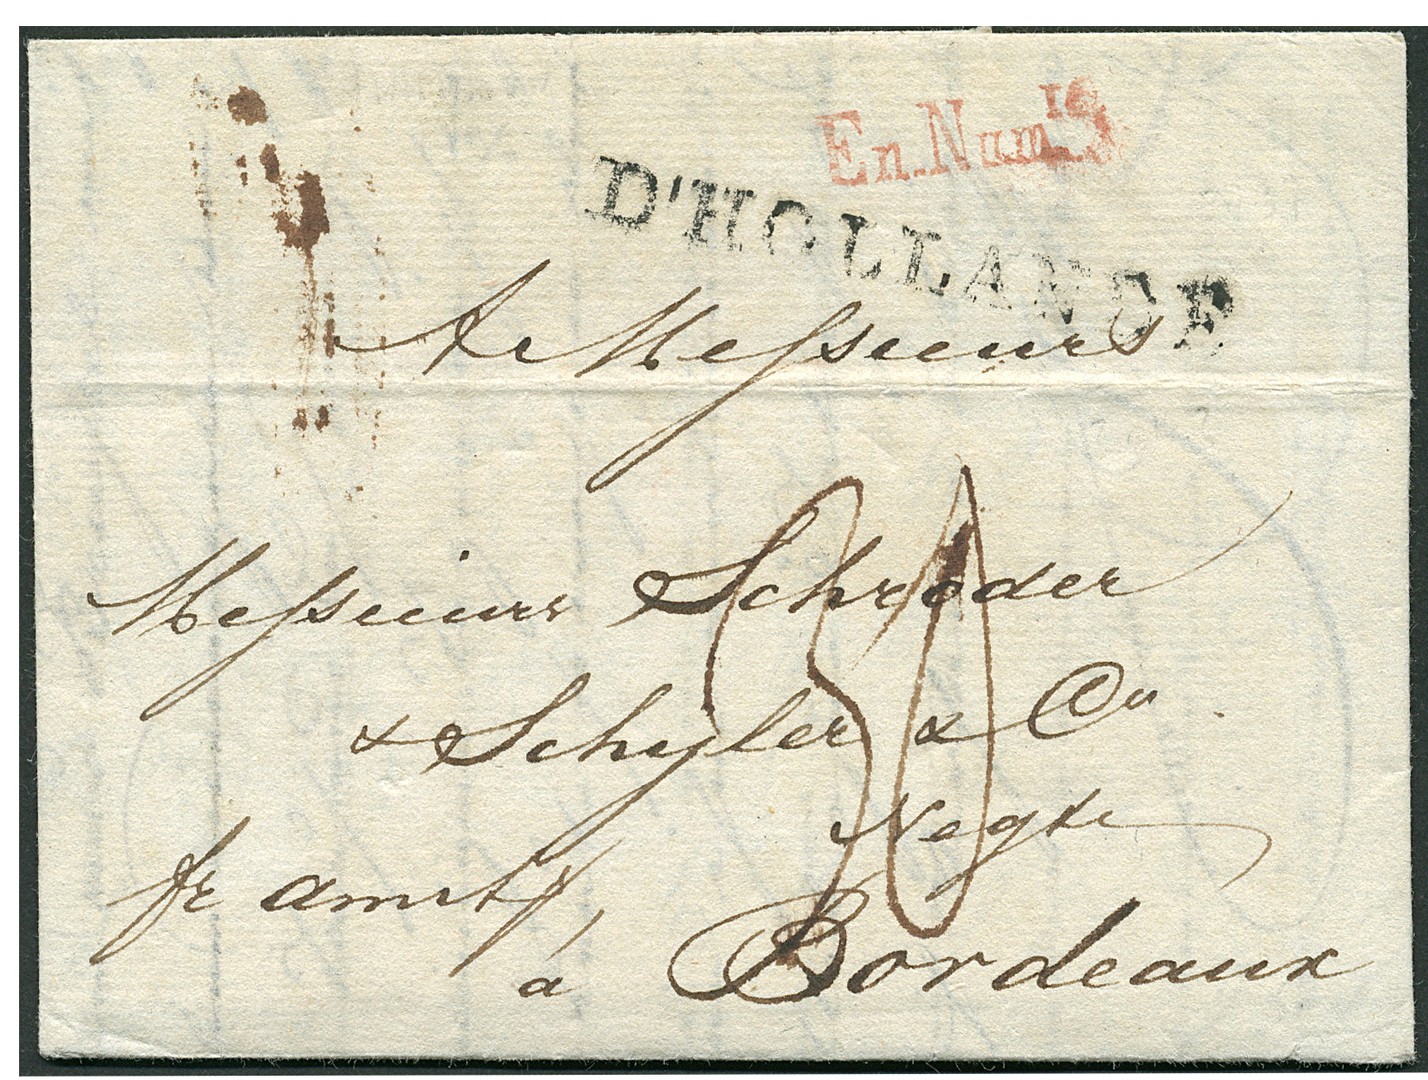 En.Num.re
D'HOLLANDE
A Messieurs
Messieurs Schroder
& Schyler & Co
Negts
fr amst,
à Bordeaux
30